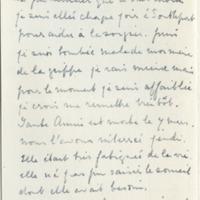 je suis allée chaque jour à Southport
pour aider à la soigner. puis
je suis tombée malade moi-même
de la grippe je vais mieux mais
pour le moment je suis affaiblie
je crois me remettre bientôt.
Tante Annie est morte le 7 mars.
nous l'avons enterrée jeudi.
Elle était très fatiguée de la vie.
elle n'a pas pu saisir le sommeil
dont elle avait besoin.